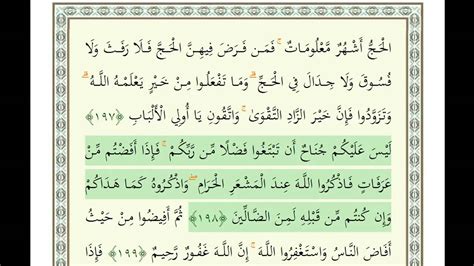 الْحَجُّ أَشْهُرٌ مَّعْلُومَاتٌ ۚ فَمَن فَرَضَ فِيهِنَّ الْحَجَّ فَلَا رَفَثَ وَلَا
فُسُوقَ وَلَا جِدَالَ فِي الْحَجِّ ۗ وَمَا تَفْعَلُوا مِنْ خَيْرٍ يَعْلَمْهُ اللَّهُ ۗ
وَتَزَوَّدُوا فَإِنَّ خَيْرَ الزَّادِ التَّقْوَىٰ ۚ وَاتَّقُونِ يَا أُولِي الْأَلْبَابِ ﴿١٩٧﴾
لَيْسَ عَلَيْكُمْ جُنَاحٌ أَن تَبْتَغُوا فَضْلًا مِّن رَّبِّكُمْ ۚ فَإِذَا أَفَضْتُم مِّنْ
عَرَفَاتٍ فَاذْكُرُوا اللَّهَ عِندَ الْمَشْعَرِ الْحَرَامِ ۖ وَاذْكُرُوهُ كَمَا هَدَاكُمْ
وَإِن كُنتُم مِّن قَبْلِهِ لَمِنَ الضَّالِّينَ ﴿١٩٨﴾ ثُمَّ أَفِيضُوا مِنْ حَيْثُ
أَفَاضَ النَّاسُ وَاسْتَغْفِرُوا اللَّهَ ۚ إِنَّ اللَّهَ غَفُورٌ رَّحِيمٌ ﴿١٩٩﴾ فَإِذَا